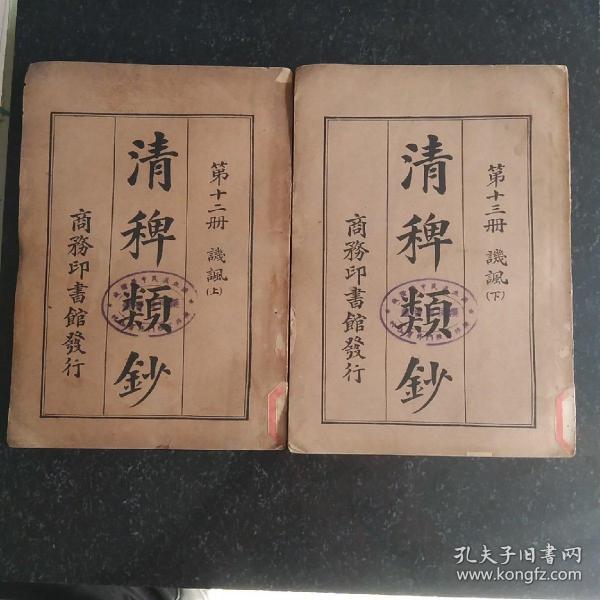 第十二册 譏諷(上)
清稗類鈔
商務印書館發行
第十三册 譏諷(下)
清稗類鈔
商務印書館發行
孔夫子旧书网
www.kongfz.com